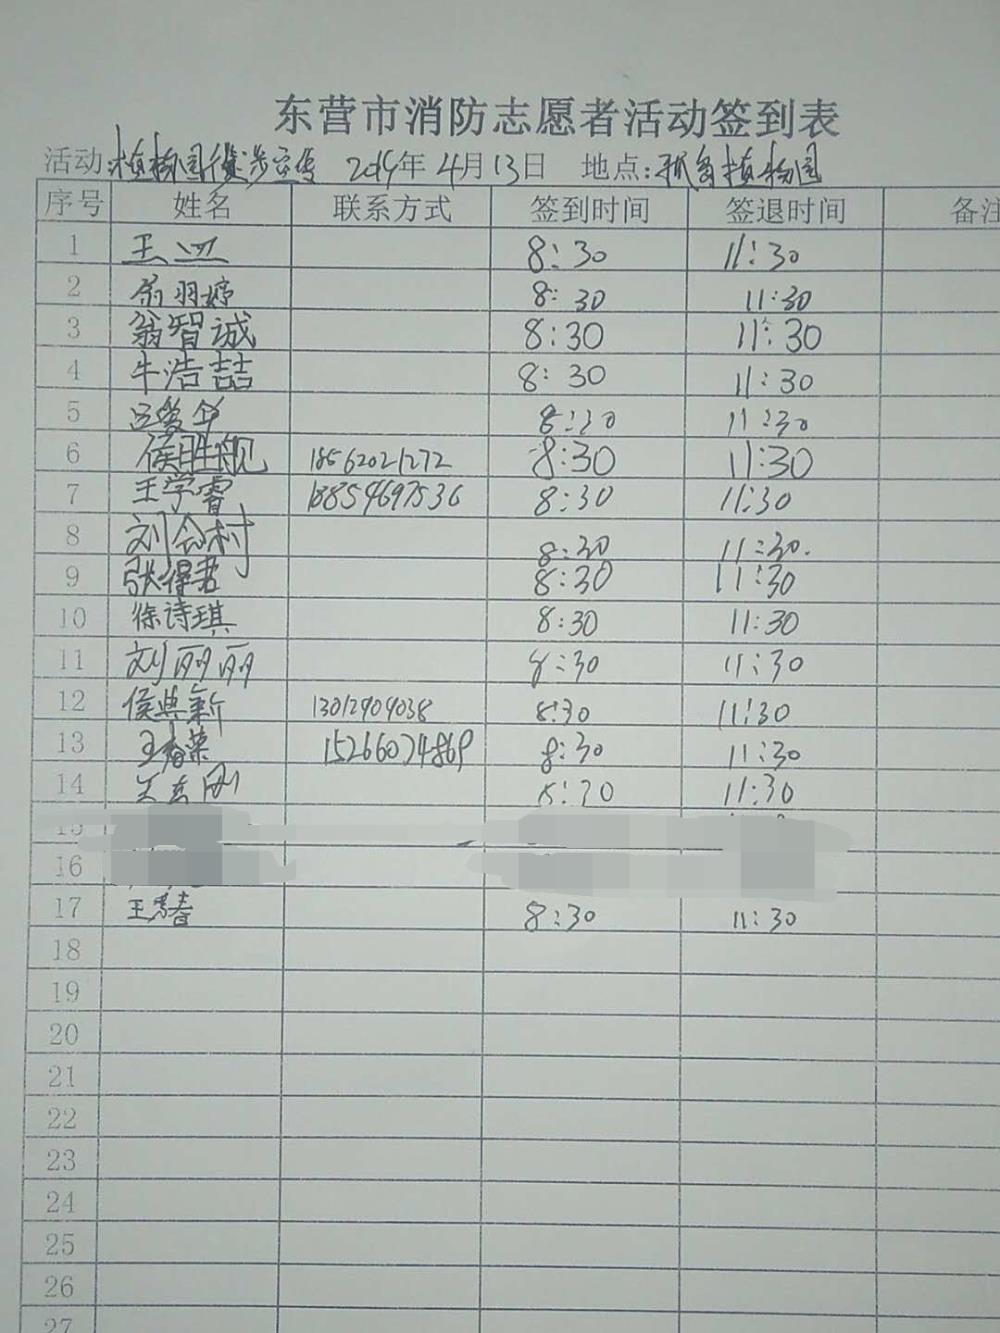 东营市消防志愿者活动签到表
活动:植物园徒步宣传 2019年4月13日 地点: 植物园
序号 姓名 联系方式 签到时间 签退时间 备注
1 王 8:30 11:30
2 羽婷 8:30 11:30
3 翁智诚 8:30 11:30
4 牛浩喆 8:30 11:30
5 8:30 11:30
6 侯胜舰 18562021272 8:30 11:30
7 王学睿 18854697536 8:30 11:30
8 刘会村 8:30 11:30.
9 张得君 8:30 11:30
10 徐诗琪 8:30 11:30
11 刘丽丽 8:30 11:30
12 侯典新 13012904038 8:30 11:30
13 王春荣 15266074869 8:30 11:30
14 刚 8:30 11:30
15
16
17 王 春 8:30 11:30
18
19
20
21
22
23
24
25
26
27